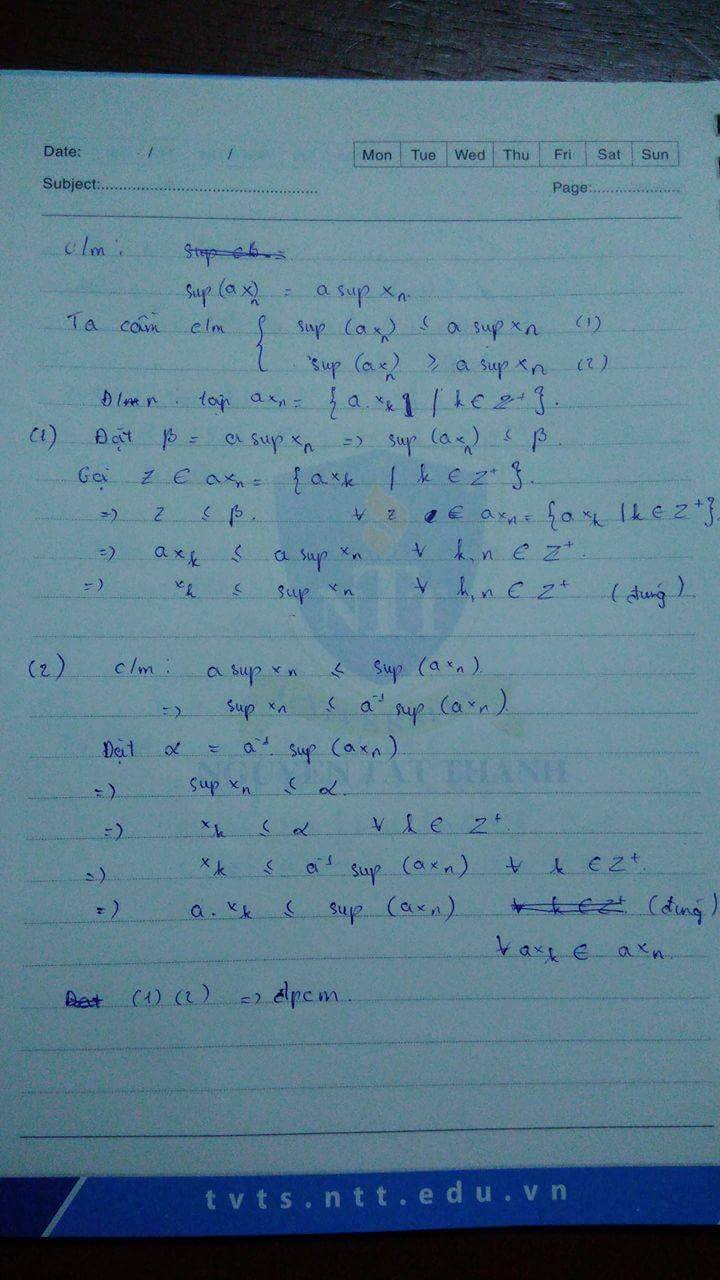 Date: / /
Mon Tue Wed Thu Fri Sat Sun
Subject:
Page:
c/m:
sup(ax_n) = a sup x_n.
Ta cần c/m { sup (ax_n) ≤ a sup x_n (1)
sup (ax_n) ≥ a sup x_n (2)
tập ax_n = { a.x_k | k ∈ Z⁺ }.
(1) Đặt β = a sup x_n => sup (ax_n) ≤ β.
Gọi z ∈ ax_n = { ax_k | k ∈ Z⁺ }.
=> z ≤ β. ∀ z ∈ ax_n = { ax_k | k ∈ Z⁺ }.
=> ax_k ≤ a sup x_n ∀ k, n ∈ Z⁺.
=> x_k ≤ sup x_n ∀ k, n ∈ Z⁺ (đúng).
NTT
(2) c/m: a sup x_n ≤ sup (ax_n)
=> sup x_n ≤ a⁻¹ sup (ax_n).
Đặt α = a⁻¹ sup (ax_n)
NGUYEN TAT THANH
=> sup x_n ≤ α.
=> x_k ≤ α ∀ k ∈ Z⁺.
=> x_k ≤ a⁻¹ sup (ax_n) ∀ k ∈ Z⁺.
=> a.x_k ≤ sup (ax_n) ∀ k ∈ Z⁺ (đúng)
∀ ax_k ∈ ax_n.
(1) (2) => đpcm.
tvts.ntt.edu.vn